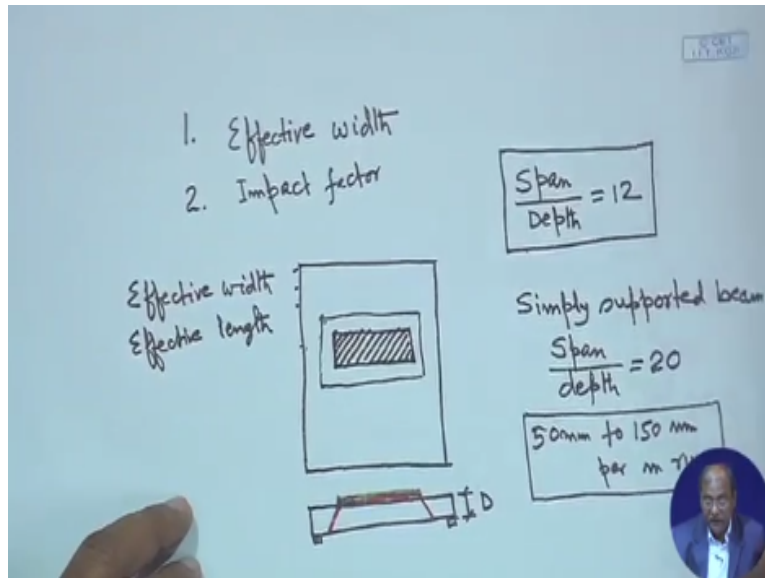 © CET
I.I.T. KGP
1. Effective width
2. Impact factor
Span
Depth = 12
Effective width
Effective length
Simply supported beam
Span
depth = 20
50mm to 150 mm
per m
D